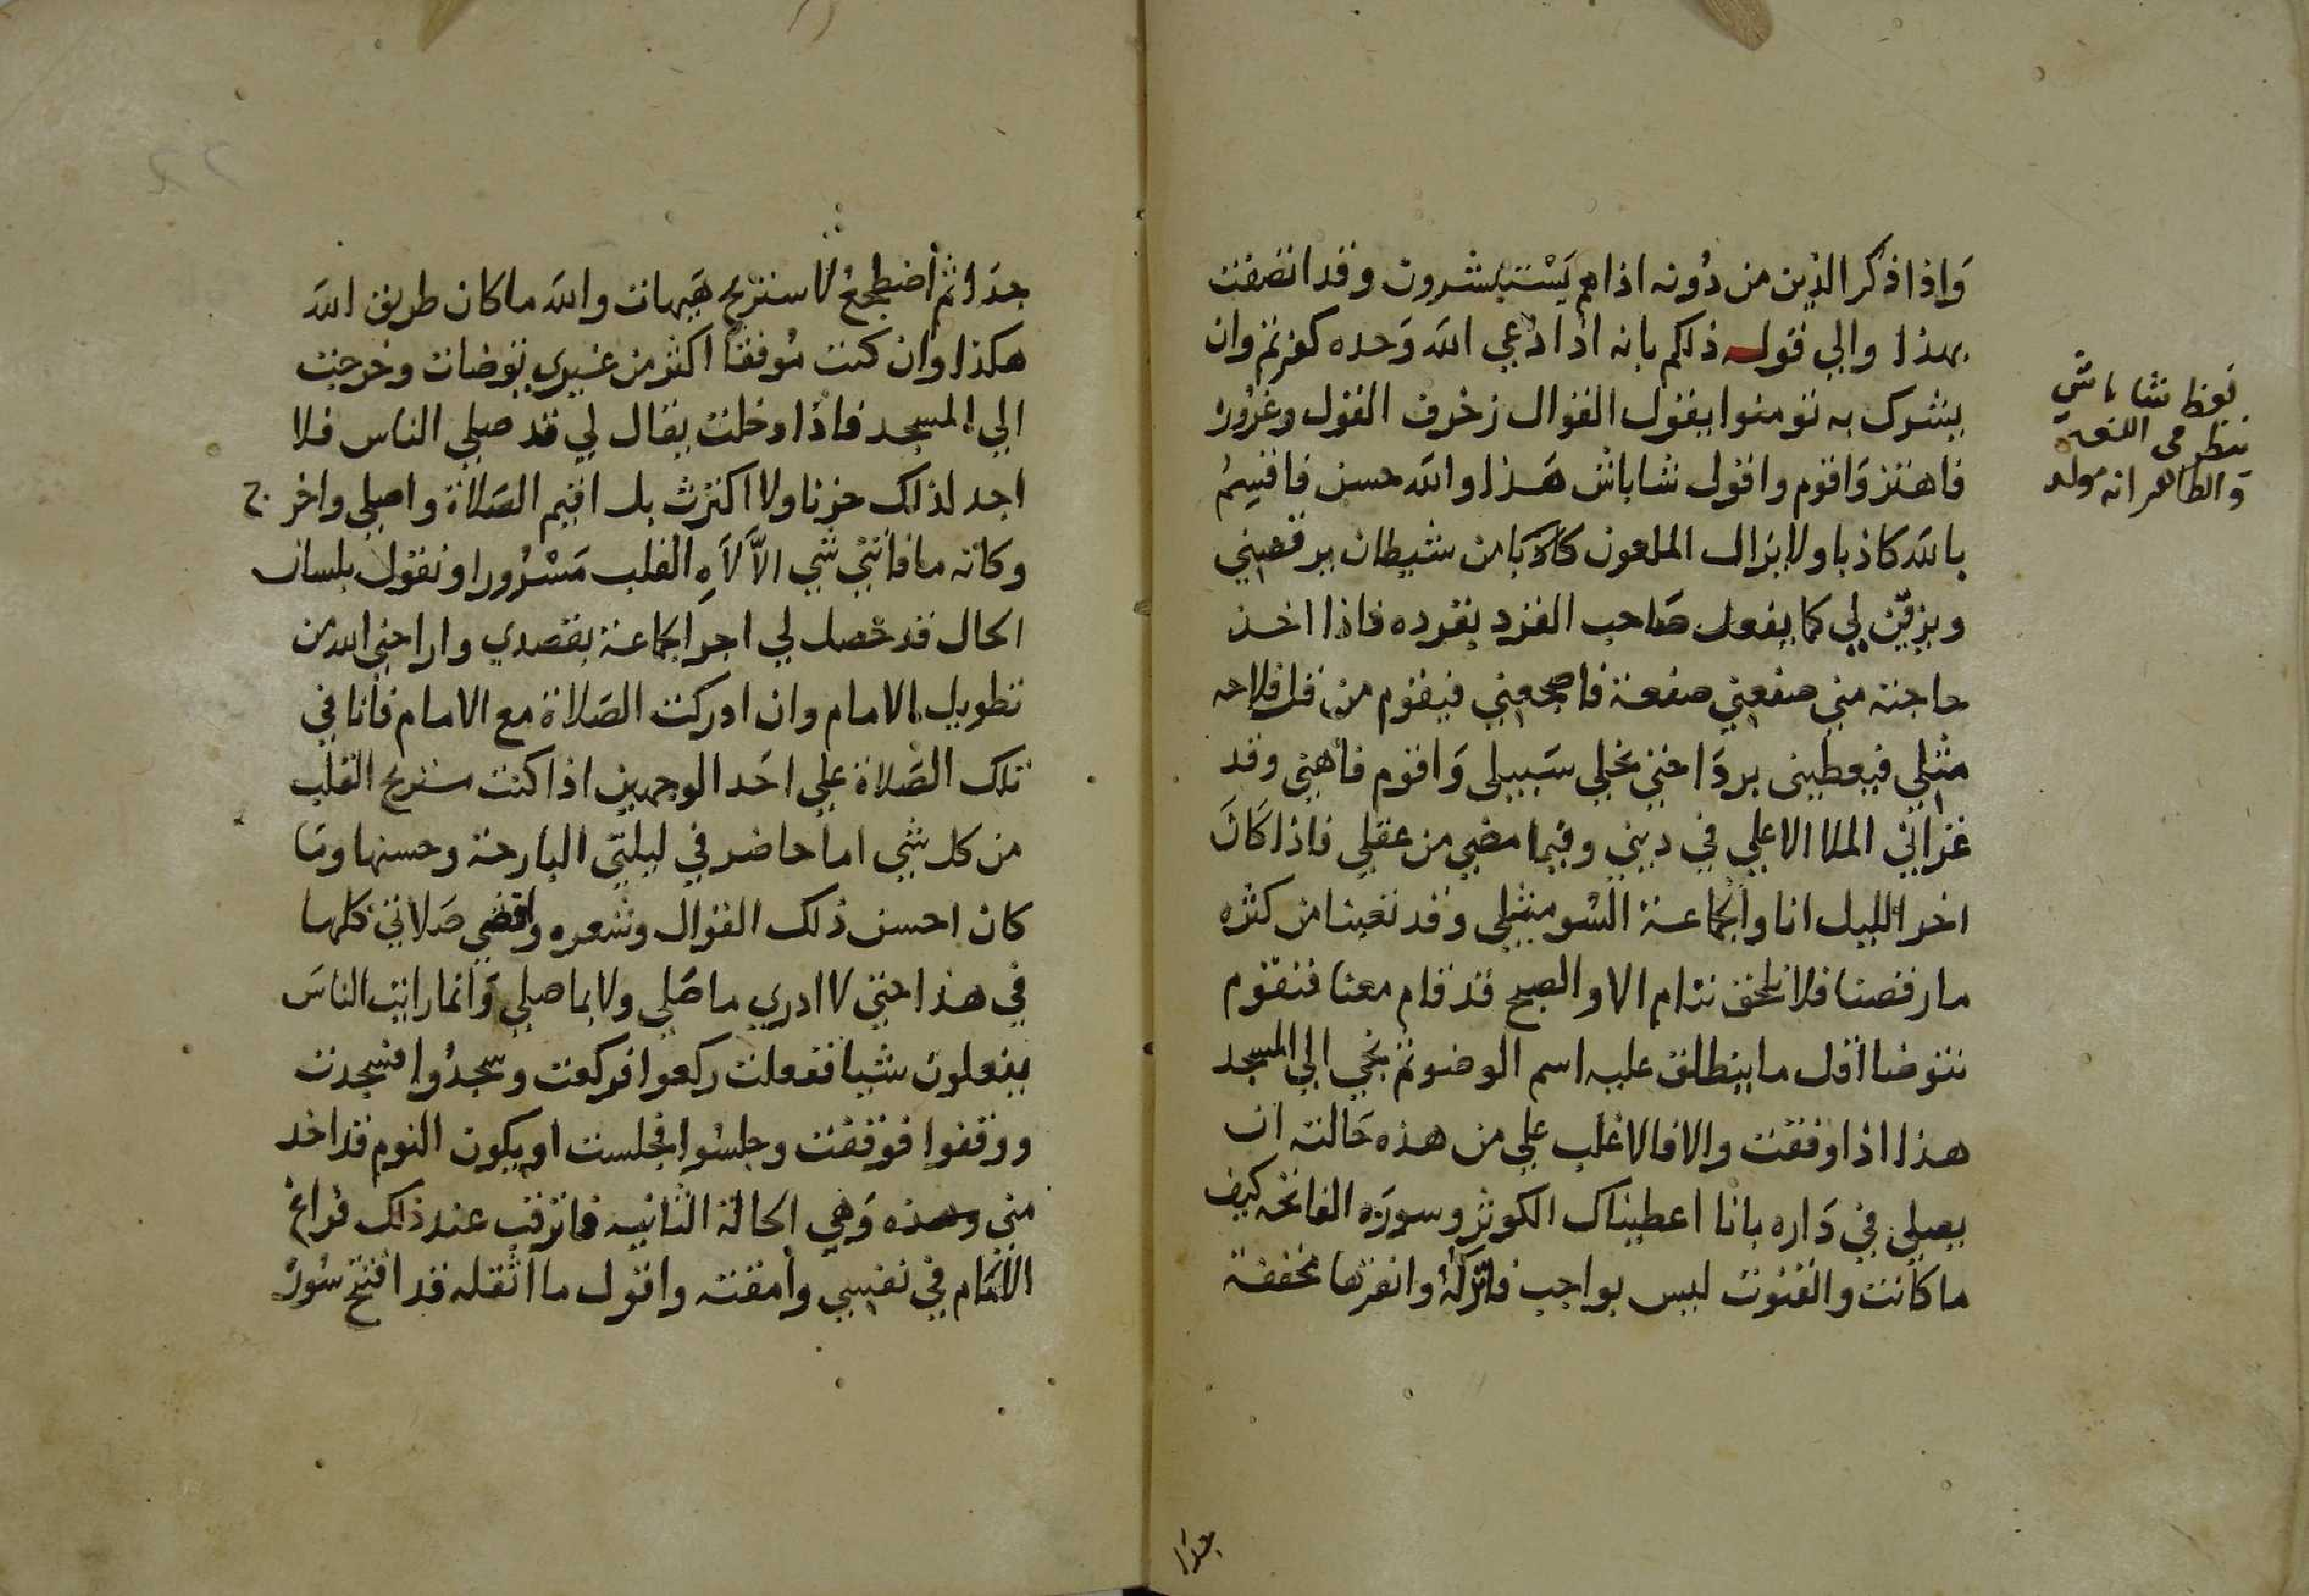 وَاذا ذكر الذين من دُونه اذا هم يَسْتبشرون وقد اتصفت
بهذا والي قوله ذلكم بانه اذا دُعي الله وَحده كفرتم وان
يشرك به تومنوا يقول القوال زخرف القول وغرُوره
فاهتز وَاقوم واقول شاباش هَذا والله حسن فاقسِمُ
بالله كاذبا ولا يزال الملعون كاذبا من شيطان يرقصني
ويزفن لي كما يفعل صَاحب القرد بقرده فاذا اخذ
حاجته مني صفعني صفعة فاضجعني فيقوم من قل فلاحه
مثلي فيعطيني بردَا حتي تخلي سَبيلي وَاقوم فاهني وقد
عزاني الملا الاعلي في ديني وفيما مضي من عقلي فاذا كَانَ
اخر الليل انا والجماعة السُو مثلي وقد تعبنا من كثره
ما رقصنا فلا نلحق ننام الا والصبح قد قام معنا فنقوم
نتوضا اقل ما ينطلق عليه اسم الوضو ثم نجي الي المسجد
هذا اذا وفقت والا فالاغلب علي من هذه حَالته ان
يصلي في دَاره بانا اعطيناك الكوثر وسورَه الفاتحه كيف
ما كانت والقنوت ليس بواجب فاتركهُ وانقرها مخففة
لفظ شاباش
ينظر في اللغه
والظاهر انه مولد
جدا
جدَا ثم أضطجعُ لاستريح هَيهات والله ما كان طريق الله
هكذا وان كنت مُوفقاً اكثر من غيري توضات وخرجت
الي المسجد فاذا دخلت يقال لي قد صلي الناس فلا
اجد لذلك حزنا ولا اكترث بل اقيم الصَلاة واصلي واخرج
وكانه ما فاتني شي الاّ لاَهِ القلب مَسْرُورا ونقول بلسان
الحال قد حْصل لي اجر الجماعة بقصدي واراحني الله من
تطويل الامام وان ادركت الصَلاة مع الامام فانا في
تلك الصَلاة علي احَد الوجهين اذا كنت مستريح القلب
من كل شي اما حاضر في ليلتي البارحة وحسنها وما
كان احسن ذلك القوال وشعره واقضي صَلاتي كلها
في هذا حتي لا ادري ما صَلي ولا بما صلي وَانما رايت الناسَ
يفعلون شيا ففعلت ركعوا فركعت وسجدُوا فسجدت
ووقفوا فوقفت وجلسُوا فجلست او يكون النوم قد اخذ
مني وهذه وَهي الحالة الثانيه فاترقب عند ذلك فراغ
الامَام في نفسي وأمقته واقول ما اثقله قد افتتح سُورة